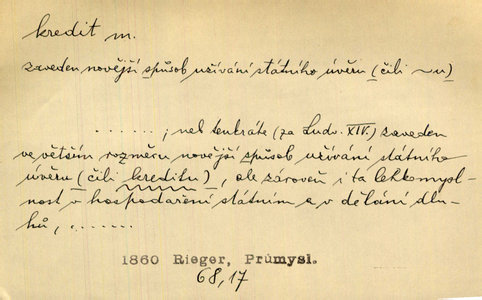 kredit m.
zaveden novější způsob užívání státního úvěru (čili ~u)
. . . . . . ; neb tenkráte (za Ludv. XIV.) zaveden
ve větším rozměru novější způsob užívání státního
úvěru (čili kreditu), ale zároveň i ta lehkomysl-
nost v hospodaření státním a v dělání dlu-
hů, . . . . . . .
1860 Rieger, Průmysl.
68,17